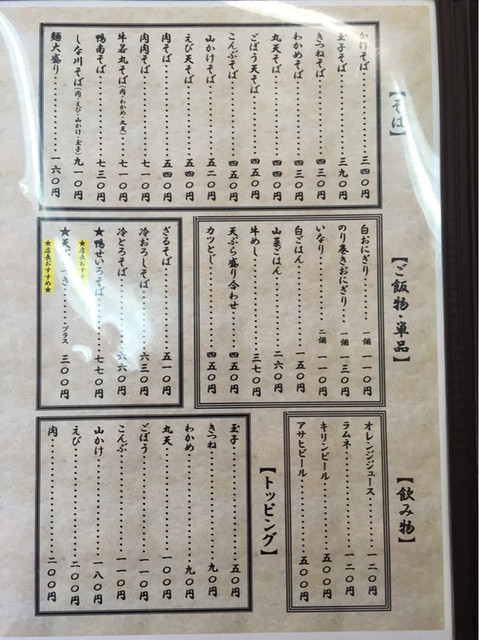 【そば】
かけそば 三四〇円
玉子そば 三九〇円
きつねそば 四三〇円
わかめそば 四三〇円
丸天そば 四四〇円
ごぼう天そば 四五〇円
こんぶそば 四五〇円
山かけそば 五二〇円
えび天そば 五四〇円
肉そば 五四〇円
肉肉そば 七一〇円
牛若丸そば(肉・わかめ・丸天) 七一〇円
鴨南そば 七三〇円
しな川そば(肉・えび・山かけ・玉子) 九一〇円
麺大盛り 一六〇円
【ご飯物・単品】
白おにぎり 一個 一一〇円
のり巻きおにぎり 一個 一三〇円
いなり 二個 一一〇円
白ごはん 一五〇円
山菜ごはん 二六〇円
牛めし 三七〇円
天ぷら盛り合わせ 四五〇円
カツとじ 四五〇円
ざるそば 五一〇円
冷おろしそば 六三〇円
冷とろそば 六六〇円
★鴨せいろそば 七七〇円
★店長おすすめ★
プラス 三〇〇円
★店長おすすめ★
【飲み物】
オレンジジュース 一二〇円
ラムネ 一二〇円
キリンビール 五〇〇円
アサヒビール 五〇〇円
【トッピング】
玉子 五〇円
きつね 九〇円
わかめ 九〇円
丸天 一〇〇円
ごぼう 一一〇円
こんぶ 一一〇円
山かけ 一八〇円
えび 二〇〇円
肉 二〇〇円